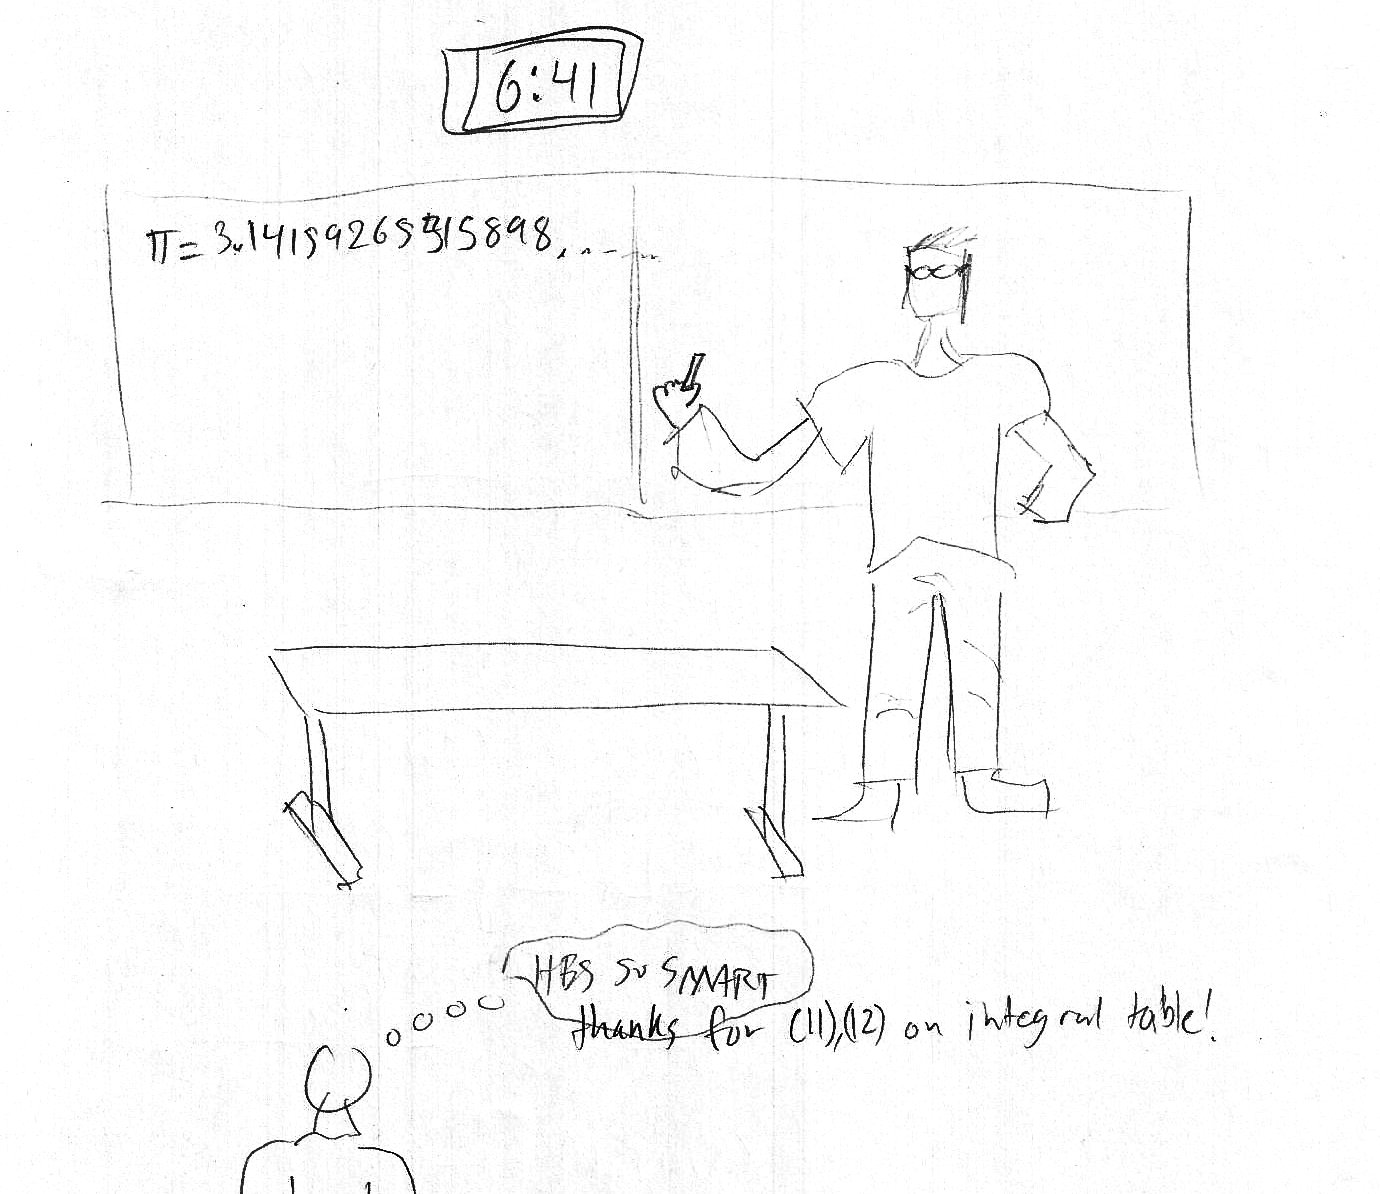 6:41
π = 3.14159265
HES SO SMART
thanks for (11),(12) on integral table!